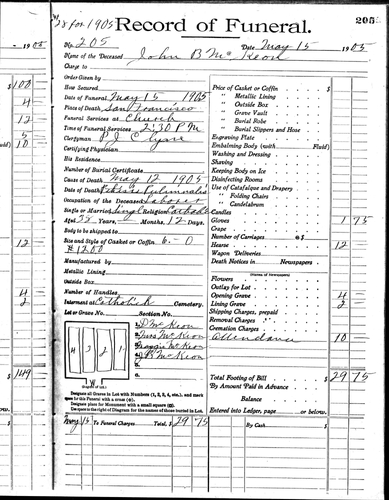 28 for 1905
Record of Funeral.
205
No. 205
Date May 15 1905
Name of the Deceased John B McKeon
Charge to
Order Given by
How Secured
Date of Funeral May 15 1905
Place of Death San Francisco
Funeral Services at Church
Time of Funeral Services 2:30 P M
Clergyman P J
Certifying Physician
His Residence
Number of Burial Certificate
Cause of Death May 12 1905
Date of Death
Occupation of the Deceased Laborer
Single or Married Single Religion Catholic
Aged 35 Years, Months, 12 Days.
Body to be shipped to
Size and Style of Casket or Coffin 6-0
#1200
Manufactured by
Metallic Lining
Outside Box
Number of Handles
Interment at Catholick Cemetery.
Lot or Grave No. Section No.
4 3 2 1
1 McKeon
2 McKeon
3 Maggie McKeon
4 J B McKeon
W
(Diagram of Lot.)
Designate all Graves in Lot with Numbers (1, 2, 3, 4, etc.), and mark
one for this Funeral with a cross (+).
Designate place for Monument with a small square (□).
Use space to the right of Diagram for the names of those buried in Lot.
May 15 To Funeral Charges Total, $ 29 75
Price of Casket or Coffin
" Metallic Lining
" Outside Box
" Grave Vault
" Burial Robe
" Burial Slippers and Hose
Engraving Plate
Embalming Body (with Fluid)
Washing and Dressing
Shaving
Keeping Body on Ice
Disinfecting Rooms
Use of Catafalque and Drapery
" Folding Chairs
" Candelabrum
Candles
Gloves 1 75
Crape
Number of Carriages @ $
Hearse 12
Wagon Deliveries
Death Notices in Newspapers
(Names of Newspapers)
Flowers
Outlay for Lot
Opening Grave 4
Lining Grave 2
Shipping Charges, prepaid
Removal Charges
Cremation Charges
Attendance 10
Total Footing of Bill $ 29 75
By Amount Paid in Advance
Balance
Entered into Ledger, page or below.
By Cash $
1905
100
4
12
5
10
12
4
2
$ 149
or below.
$